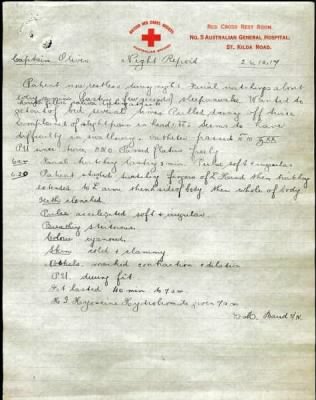 BRITISH RED CROSS SOCIETY
AUSTRALIAN BRANCH
RED CROSS REST ROOM,
No. 5 AUSTRALIAN GENERAL HOSPITAL,
ST. KILDA ROAD.
Captain Oliver Night Report 2.10.17
Patient very restless during night. Facial twitchings about
Wanted to
get out of bed several times Pulled dressing off twice
Complained of slight pain in head. Seems to have
difficulty in swallowing. Catheter passed
P.U. twice Passed flatus freely
Facial twitching lasting 3 min. Pulse soft & irregular
6.30 Patient started twitching fingers of L Hand then twitching
extended to L arm then side of body then whole of body
Teeth clenched
Pulse accelerated soft & irregular
Breathing stertorous
Colour cyanosed
Skin cold & clammy
marked contraction & dilation
P.U. during fit
Fit lasted 40 min to 7 a.m.
H.I. Hyoscine Hydrobromide given 7 a.m.
Baud S/N.